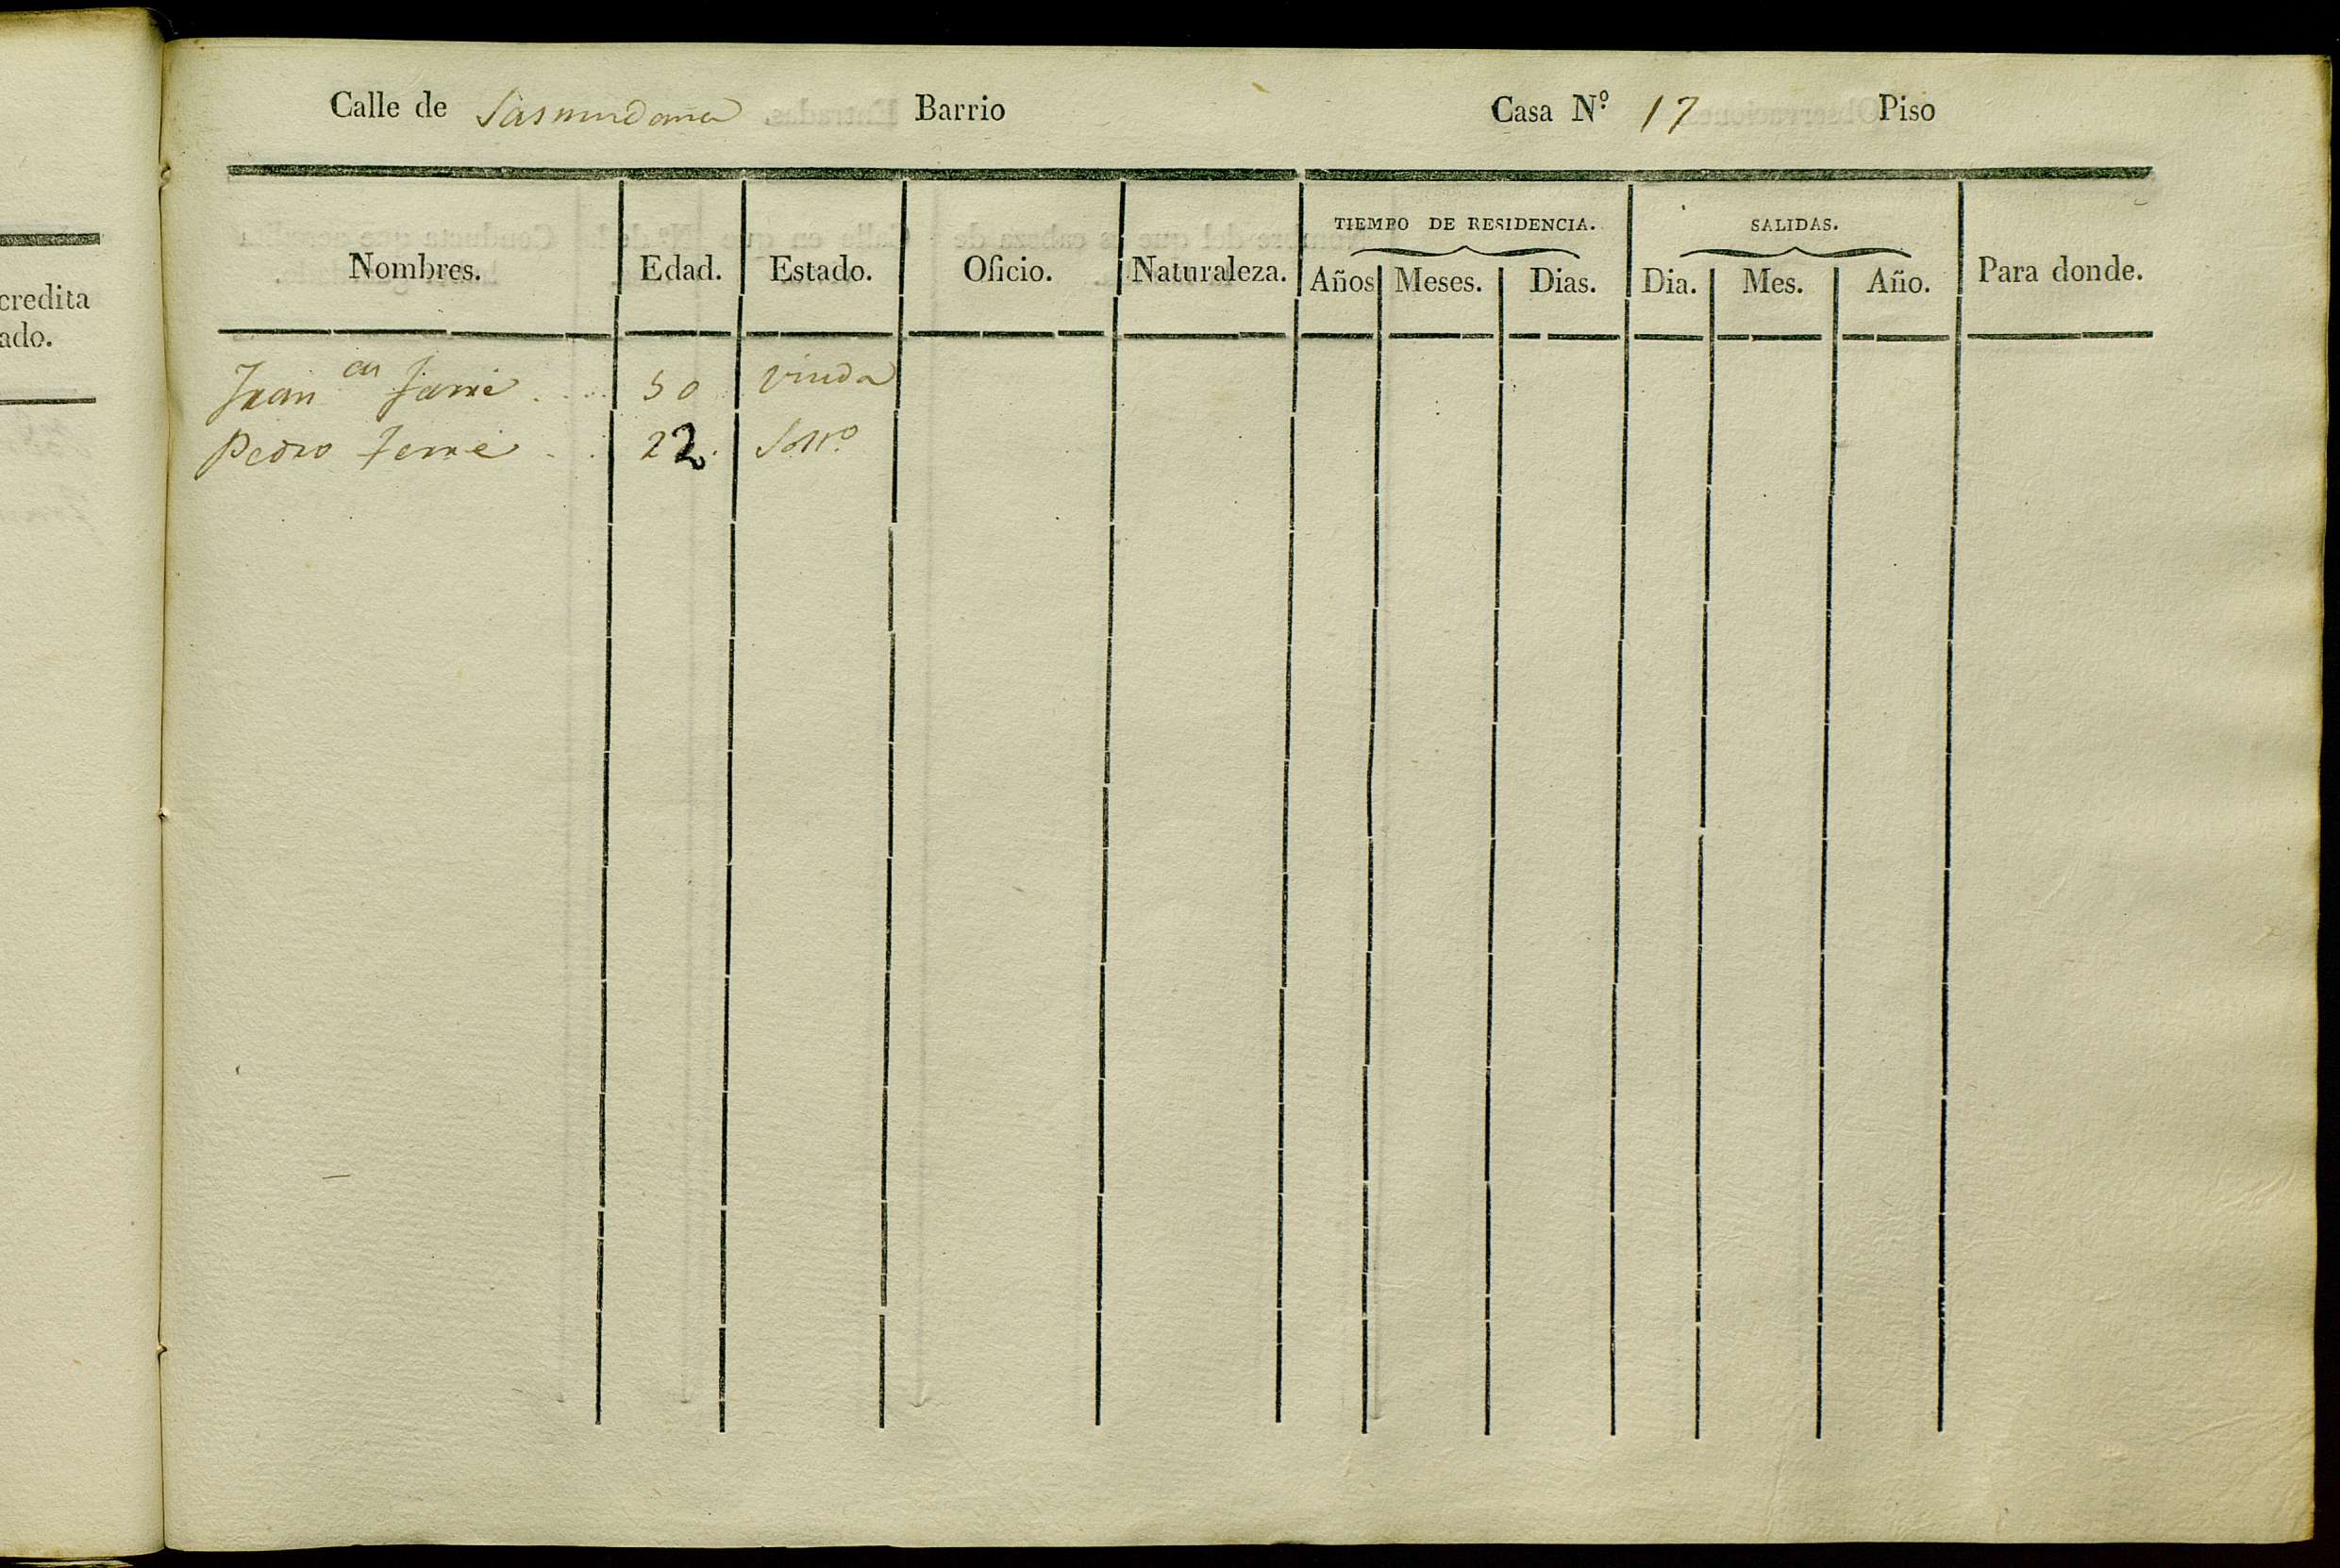 Calle de Barrio Casa N.º 17 Piso
TIEMPO DE RESIDENCIA. SALIDAS.
Nombres. Edad. Estado. Oficio. Naturaleza. Años Meses. Dias. Dia. Mes. Año. Para donde.
Fran ca Ferré 50 viuda
Pedro Ferré 22. Solt.º
credita
ado.